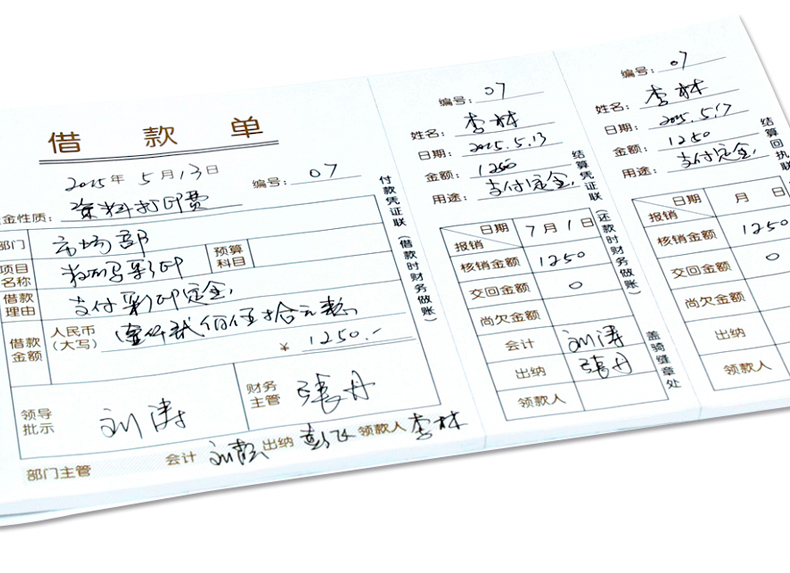 借款单
2015年5月13日 编号: 07
金性质: 资料打印费
部门 市场部
项目名称 数码彩印 预算科目
借款理由 支付彩印定金,
借款金额 人民币(大写) 壹仟贰佰伍拾元整
¥ 1250.-
领导批示 刘涛 财务主管 張丹
部门主管 会计 刘 出纳 彭飞 领款人 李林
付款凭证联(借款时财务做账)
编号: 07
姓名: 李林
日期: 2015.5.13
金额: 1250
用途: 支付定金,
日期 报销 7月1日
核销金额 1250
交回金额 0
尚欠金额
会计 刘涛
出纳 張丹
领款人
结算凭证联(还款时财务做账)
盖骑缝章处
编号: 07
姓名: 李林
日期: 2015.5.17
金额: 1250
用途: 支付定金,
日期 报销 月 日
核销金额 1250
交回金额 0
尚欠金额
出纳
领款人
结算回执联